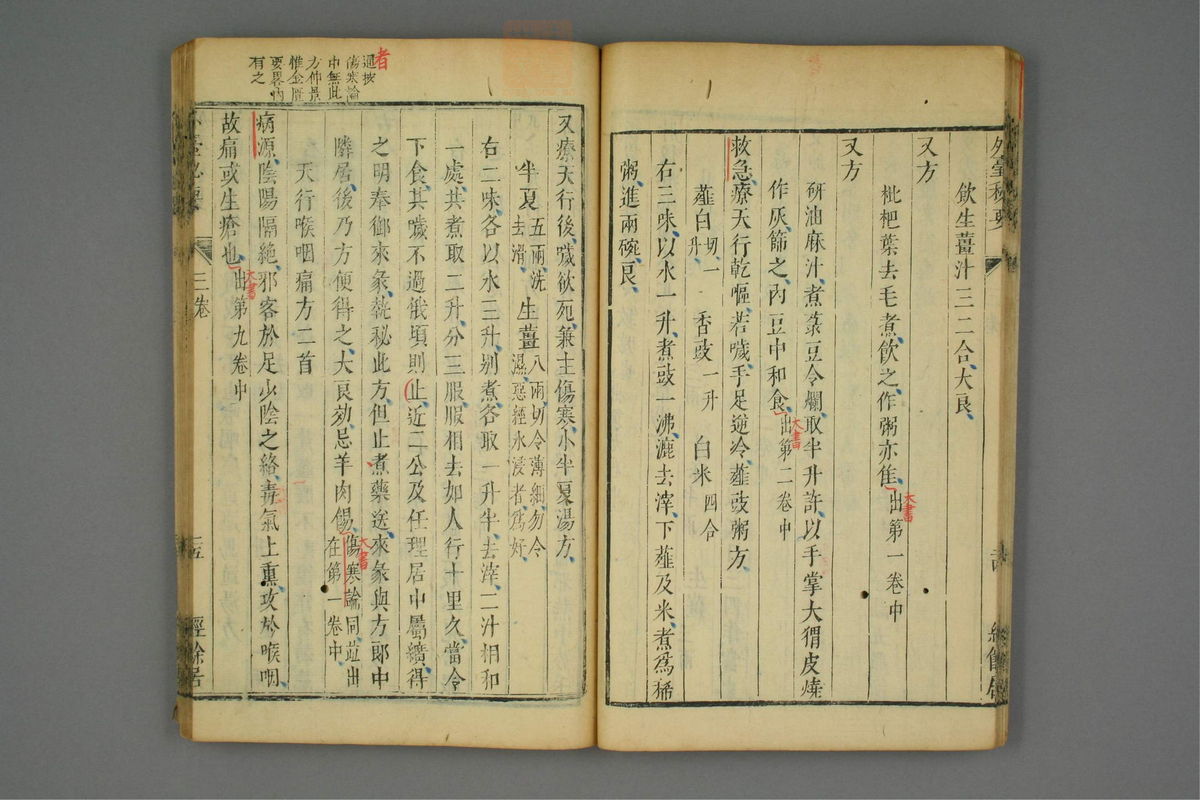 外臺秘要
飲生薑汁三二合大良
又方
枇杷葉去毛煮飲之作粥亦隹出第一卷中
大書
又方
研油麻汁煮菉豆令爛取半升許以手掌大猬皮燒
作灰篩之內豆中和食出第二卷中
大書
救急療天行乾嘔若噦手足逆冷薤豉粥方
薤白切一升 香豉一升 白米四合
右三味以水一升煮豉一沸漉去滓下薤及米煮爲稀
粥進兩碗良
又療天行後噦欲死兼主傷寒小半夏湯方
半夏五兩洗去滑 生薑八兩切令薄細勿令濕惡經水浸者爲好
右二味各以水三升別煮各取一升半去滓二汁相和
一處共煮取二升分三服服相去如人行十里久當令
下食其噦不過俄頃則止近二公及任理居中屬纊得
之明奉御來彖㲼秘此方但止煮藥送來彖與方郎中
隣居後乃方便得之大良効忌羊肉餳傷寒論同竝出在第一卷中
大書
天行喉咽痛方二首
病源陰陽隔絶邪客於足少陰之絡毒氣上熏攻於喉咽
故痛或生瘡也出第九卷中
大書
者
通按
傷寒論
中無此
方仲景
惟金匱
要畧內
有之
三卷
二五
經餘居